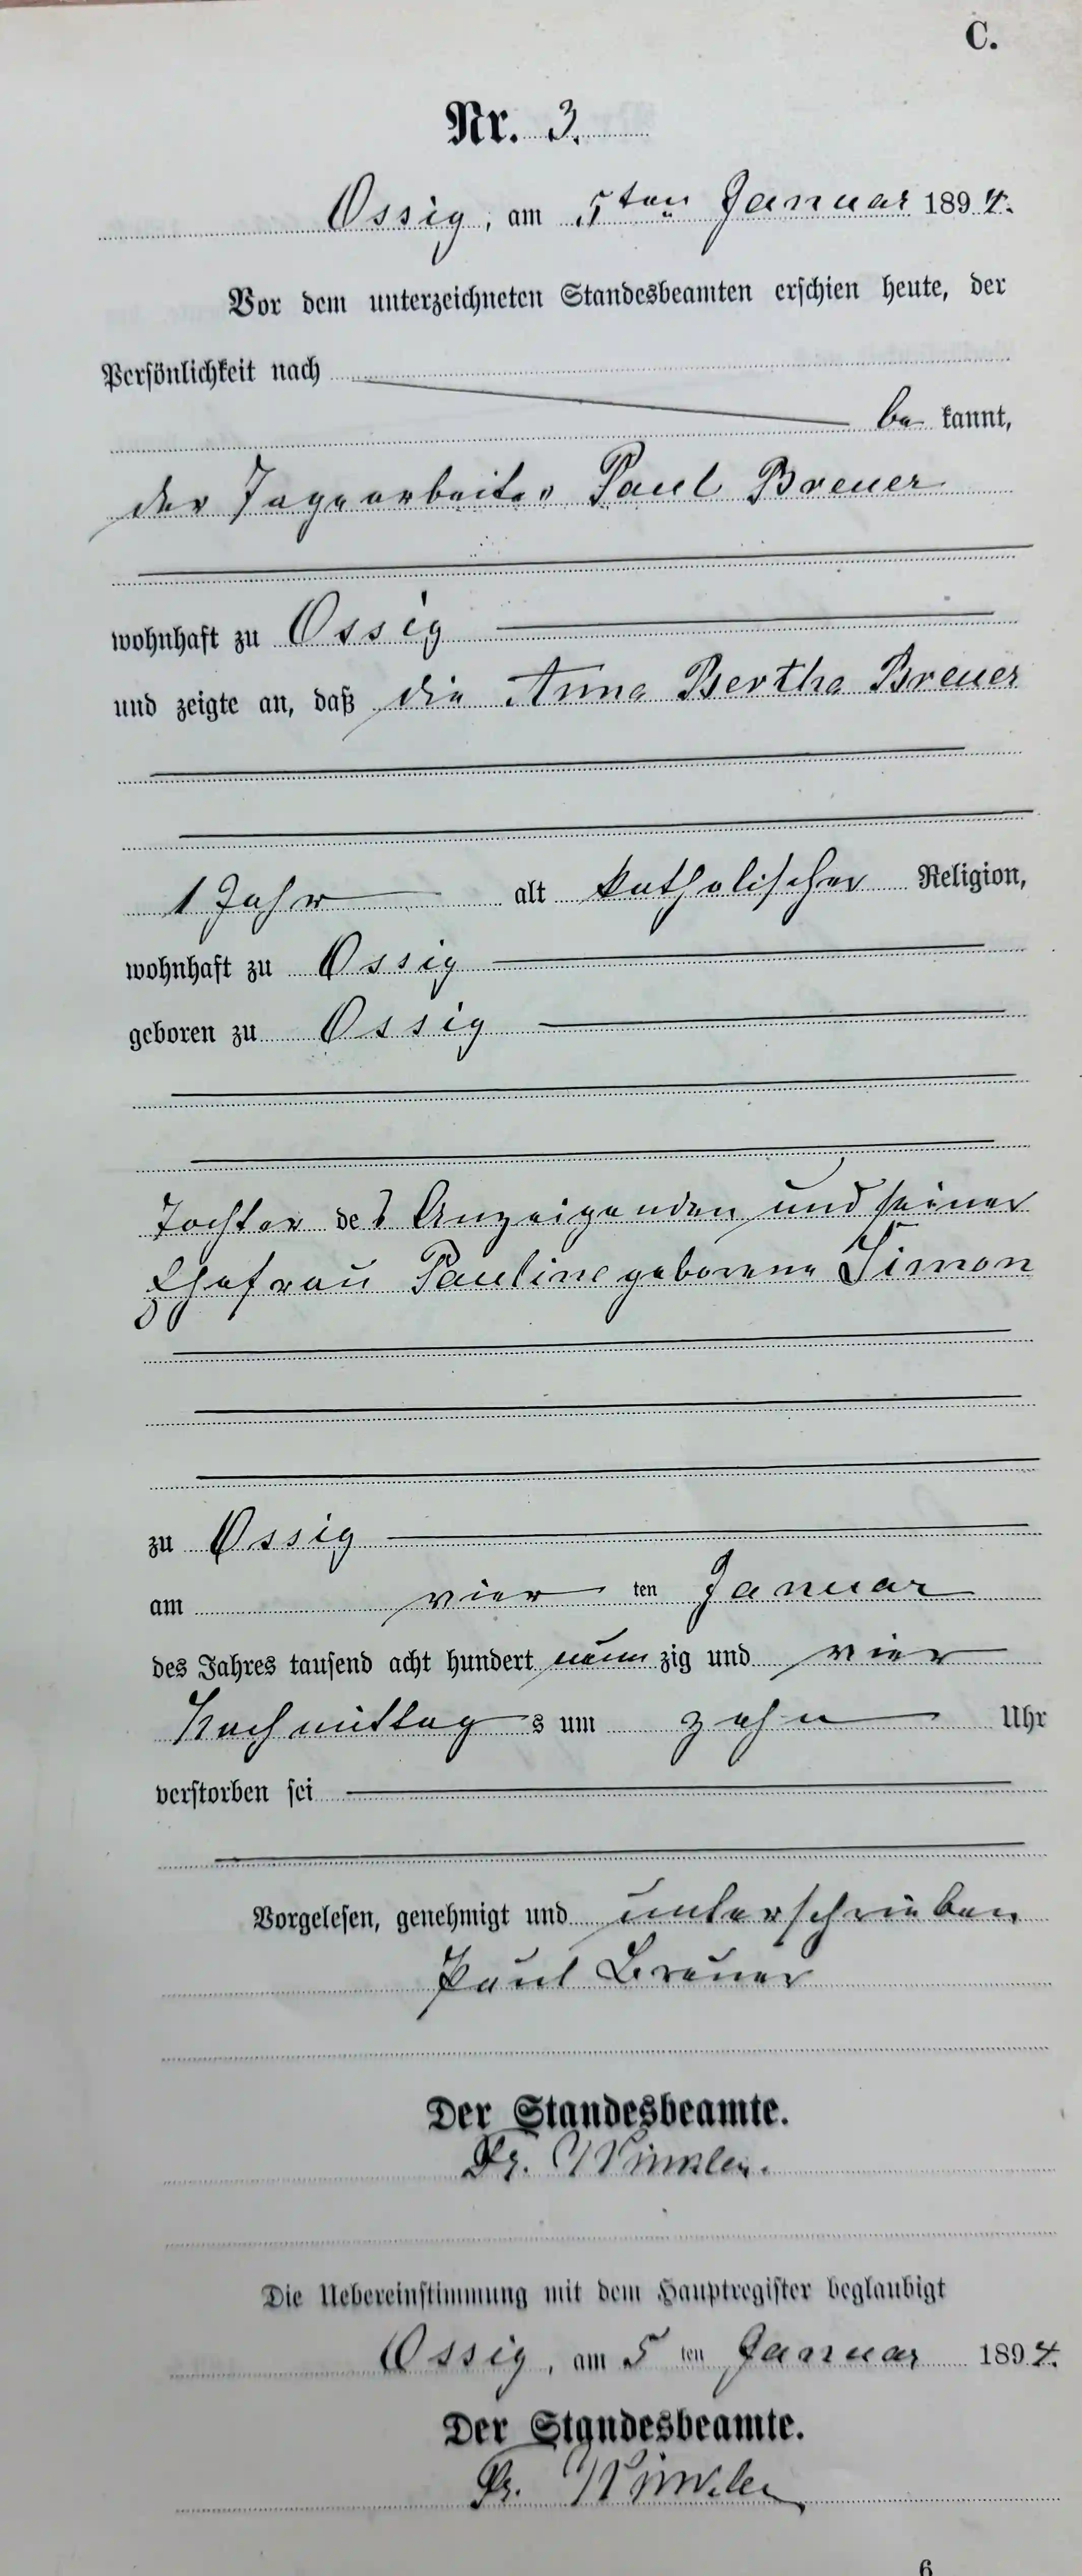 C.
Nr. 3.
Ossig, am 5ten Januar 1894.
Vor dem unterzeichneten Standesbeamten erschien heute, der
Persönlichkeit nach
be kannt,
der Tagearbeiter Paul Breuer
wohnhaft zu Ossig
und zeigte an, daß die Anna Bertha Breuer
1 Jahr alt katholischer Religion,
wohnhaft zu Ossig
geboren zu Ossig
Tochter des Anzeigenden und seiner
Ehefrau Pauline geborene Simon
zu Ossig
am vier ten Januar
des Jahres tausend acht hundert neun zig und vier
Nachmittag s um zehn Uhr
verstorben sei
Vorgelesen, genehmigt und unterschrieben
Paul Breuer
Der Standesbeamte.
Fr. Winkler.
Die Uebereinstimmung mit dem Hauptregister beglaubigt
Ossig, am 5 ten Januar 1894.
Der Standesbeamte.
Fr. Winkler
6